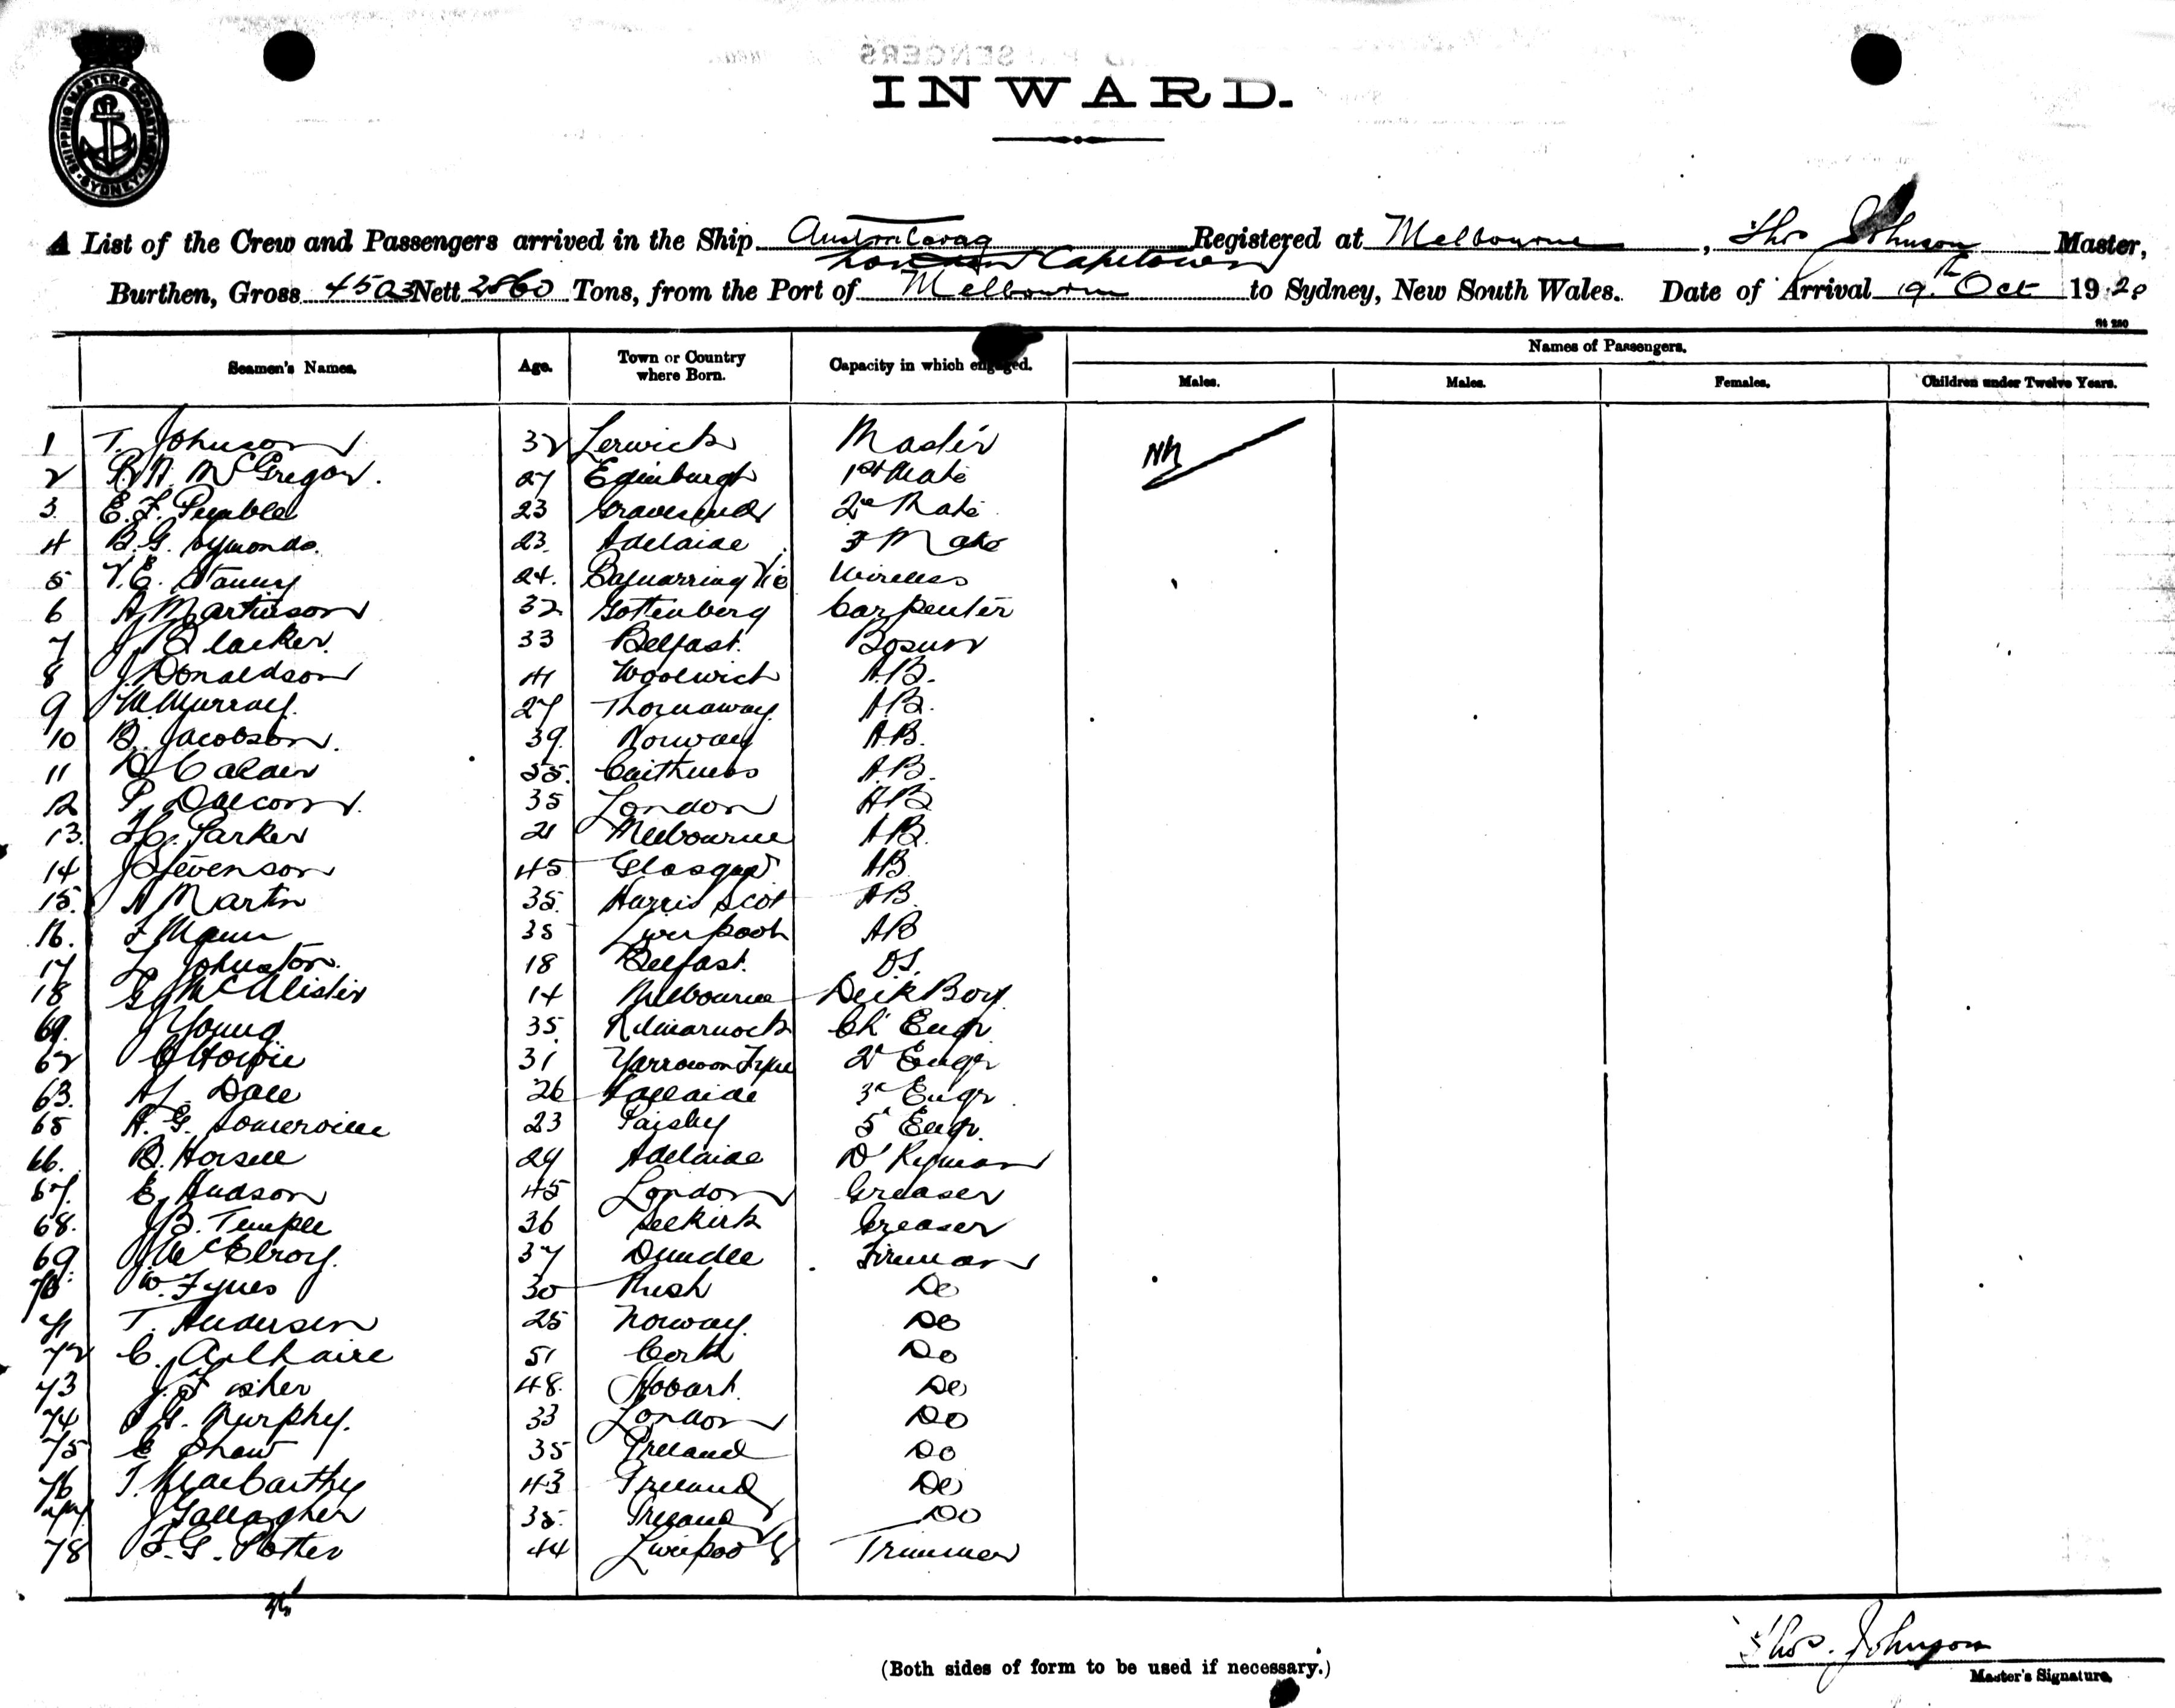 SHIPPING MASTERS DEPARTMENT
SYDNEY
INWARD.
A List of the Crew and Passengers arrived in the Ship Registered at Melbourne, Thos Johnson Master,
Capetown
Burthen, Gross 4503 Nett 2860 Tons, from the Port of Melbourne to Sydney, New South Wales. Date of Arrival 19th Oct 1920
Seamen's Names. Age. Town or Country where Born. Capacity in which engaged. Names of Passengers.
Males. Males. Females. Children under Twelve Years.
1 T. Johnson 32 Lerwick Master Nil
2 McGregor. 27 Edinburgh 1st Mate
3. E. F. 23 Gravesend 2d Mate
4 B. G. Symonds. 23. Adelaide 3 Mate
5 V. E. 24. Vic Wireless
6 A Martinson 32 Gottenberg Carpenter
7 J. 33 Belfast. Bosun
8 J. Donaldson 41 Woolwich A.B.
9 W. Murray. 27 A.B.
10 B. Jacobson. 39. Norway A.B.
11 D Calder 55. Caithness A.B.
12 P. 35 London A.B.
13. Parker 21 Melbourne A.B.
14 J Stevenson 45 Glasgow AB
15. A Martin 35. Harris Scot AB.
16. F Mann 35 Liverpool AB
17 L. Johnston. 18 Belfast. O.S.
18 McAlister 14 Melbourne Deck Boy
J Young 35. Kilmarnock Ch Engr.
62 Howie 31 Yarrow on Tyne 2d Engr
63. A J. Dale 26 Adelaide 3d Engr.
65 A. G. Somerville 23 Paisley 5 Engr.
66. B. Horsell 29 Adelaide Dkyman
67. E. Hudson 45 London Greaser
68. J B. Temple 36 Selkirk Greaser
69 J McElroy. 37 Dundee Fireman
70 W. Fynes 30 Rush Do
71 T. Andersen 25 Norway. Do
72 C. 51 Cork Do
73 J. Fisher 48. Hobart. Do
74 Murphy. 33 London Do
75 E Shaw 35 Ireland Do
76 T. MacCarthy 43 Ireland Do
77 J Gallagher 35. Ireland Do
78 F. G. Potter 44 Liverpool Trimmer
Thos. Johnson
Master's Signature.
(Both sides of form to be used if necessary.)